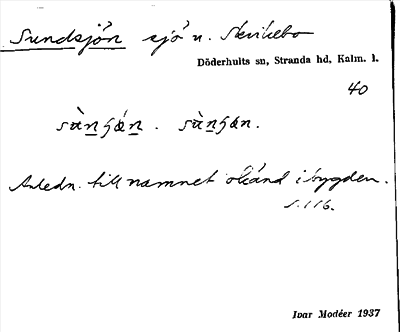 Sundsjön sjö n. Skvikebo
Döderhults sn, Stranda hd, Kalm. l.
40
sùnʃøn. sùnʃøn.
Anledn. till namnet okänd i bygden.
s. 116.
Ivar Modéer 1937